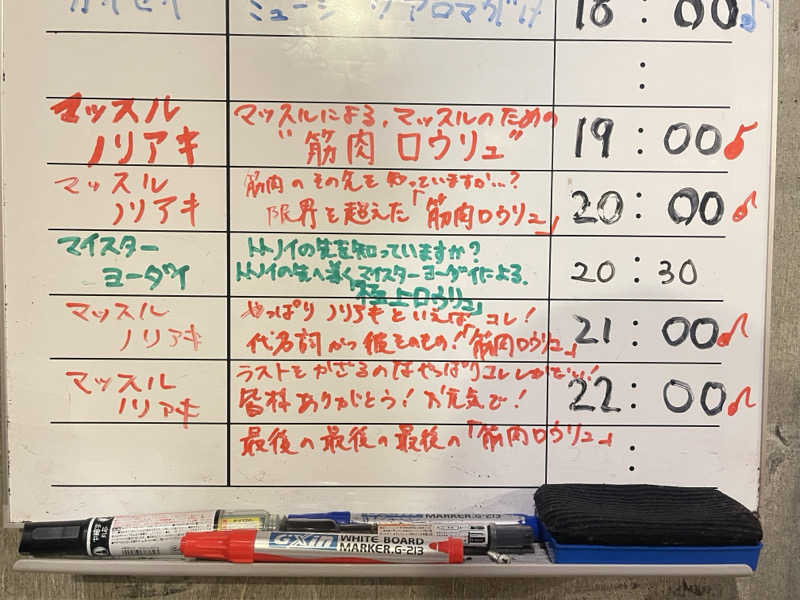 18:00♪
マッスル
ノリアキ
マッスルによる、マッスルのための
"筋肉 ロウリュ"
19:00♪
マッスル
ノリアキ
筋肉のその先を知っていますか…?
限界を超えた「筋肉ロウリュ」
20:00♪
マイスター
ヨーダイ
トトノイの先を知っていますか?
トトノイの先へ導くマイスターヨーダイによる、
「極上ロウリュ」
20:30
マッスル
ノリアキ
やっぱりノリアキといえばコレ!
代名詞かつ彼そのもの!「筋肉ロウリュ」
21:00♪
マッスル
ノリアキ
ラストをかざるのはやっぱりコレしかない!
皆様ありがとう!お元気で!
22:00♪
最後の最後の最後の「筋肉ロウリュ」
:
GXin WHITE BOARD
MARKER.G-213
MARKER.G-213